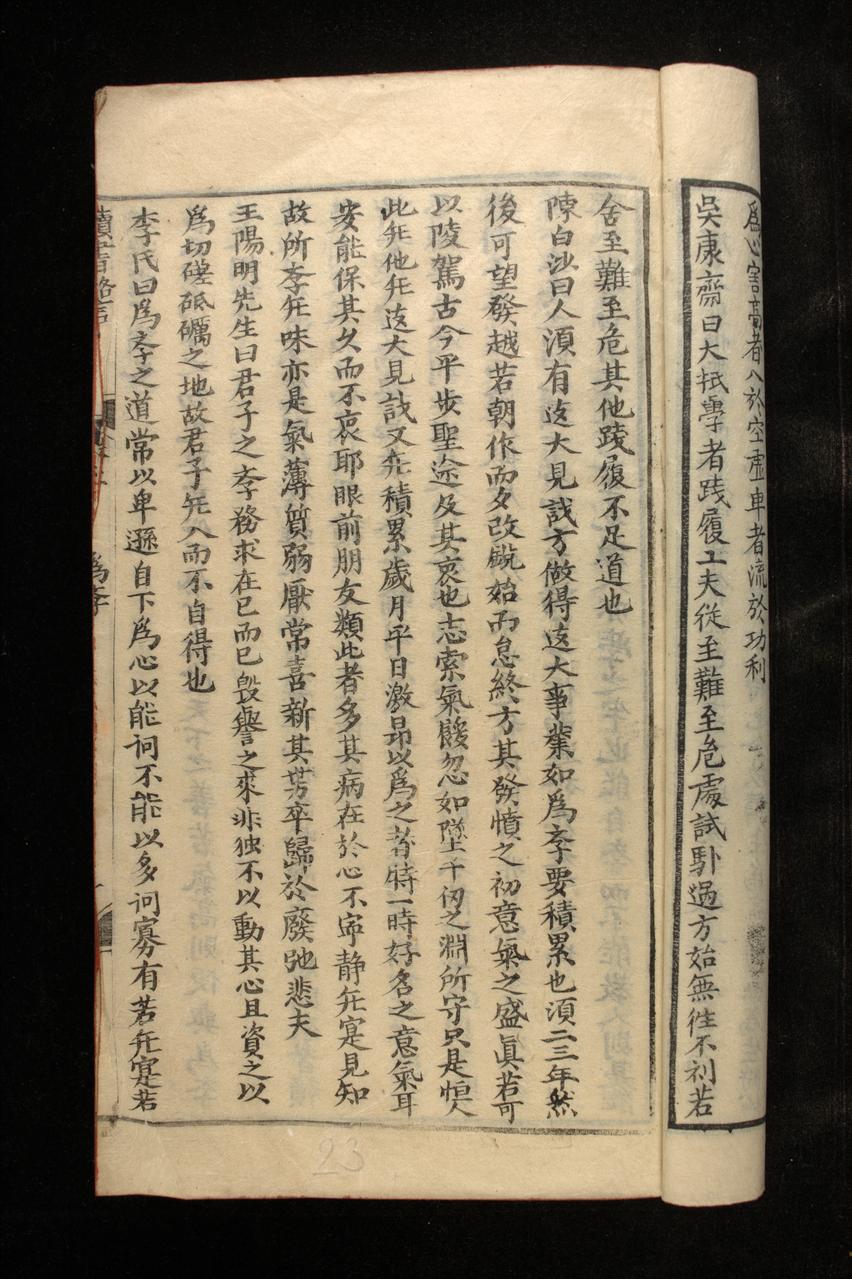 爲心害高者入於空虛卑者流於功利
吳康齋曰大抵學者踐履工夫從至難至危處試驗過方始無往不利若
舍至難至危其他踐履不足道也
陳白沙曰人須有遠大見識方做得遠大事業如爲斈要積累也須二三年然
後可望發越若朝作而夕改旣始而怠終方其發憤之初意氣之盛眞若可
以陵駕古今平步聖途及其衰也志索氣餒忽如墜千仭之淵所守只是恒人
此旡他旡遠大見識又旡積累歲月平日激昻以爲之者特一時好名之意氣耳
安能保其久而不衰耶眼前朋友類此者多其病在於心不寧静旡寔見知
故所斈旡味亦是氣薄質弱厭常喜新其勢卒歸於廢弛悲夫
王陽明先生曰君子之斈務求在已而已毀譽之來非独不以動其心且資之以
爲切磋砥礪之地故君子旡入而不自得也
李氏曰爲斈之道常以卑遜自下爲心以能问不能以多问寡有若旡寔若
讀書略言
爲斈
23